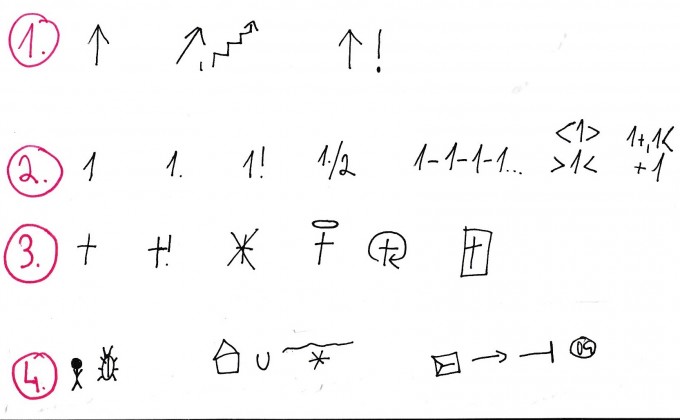 1. ↑ ↗ ↑!
2. 1 1. 1! 1./2 1-1-1-1... <1> >1< 1+,1< +1
3. † †!
4. ∪ → ⊣ 09